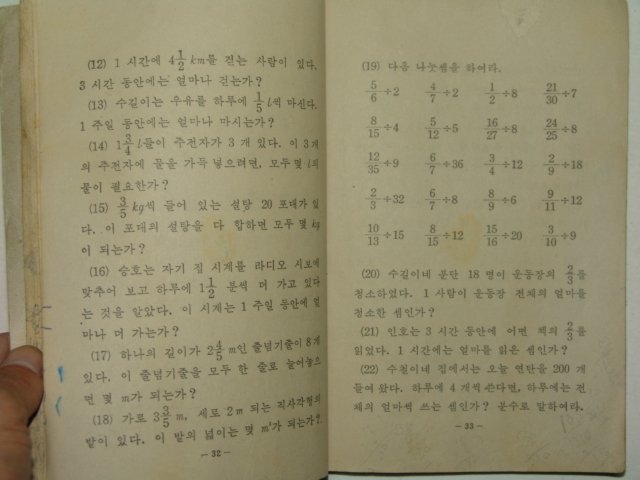 (12) 1 시간에 4 1/2 km를 걷는 사람이 있다.
3 시간 동안에는 얼마나 걷는가?
(13) 수길이는 우유를 하루에 1/5 l씩 마신다.
1 주일 동안에는 얼마나 마시는가?
(14) 1 3/4 l들이 주전자가 3 개 있다. 이 3개
의 주전자에 물을 가득 넣으려면, 모두 몇 l의
물이 필요한가?
(15) 3/5 kg씩 들어 있는 설탕 20 포대가 있
다. 이 포대의 설탕을 다 합하면 모두 몇 kg
이 되는가?
(16) 승호는 자기 집 시계를 라디오 시보에
맞추어 보고 하루에 1 1/2 분씩 더 가고 있다
는 것을 알았다. 이 시계는 1 주일 동안에 얼
마나 더 가는가?
(17) 하나의 길이가 2 4/5 m인 줄넘기줄이 8개
있다. 이 줄넘기줄을 모두 한 줄로 늘어놓으
면 몇 m가 되는가?
(18) 가로 3 3/5 m, 세로 2 m 되는 직사각형의
밭이 있다. 이 밭의 넓이는 몇 m²가 되는가?
— 32 —
(19) 다음 나눗셈을 하여라.
5/6÷2 4/7÷2 1/2÷8 21/30÷7
8/15÷4 5/12÷5 16/27÷8 24/25÷8
12/35÷9 6/7÷36 3/4÷12 2/9÷18
2/3÷32 6/7÷8 8/9÷6 9/11÷12
10/13÷15 8/15÷12 15/16÷20 3/10÷9
(20) 수길이네 분단 18 명이 운동장의 2/3를
청소하였다. 1 사람이 운동장 전체의 얼마를
청소한 셈인가?
(21) 인호는 3 시간 동안에 어떤 책의 2/3를
읽었다. 1 시간에는 얼마를 읽은 셈인가?
(22) 수철이네 집에서는 오늘 연탄을 200 개
들여 왔다. 하루에 4 개씩 쓴다면, 하루에는 전
체의 얼마씩 쓰는 셈인가? 분수로 말하여라.
— 33 —